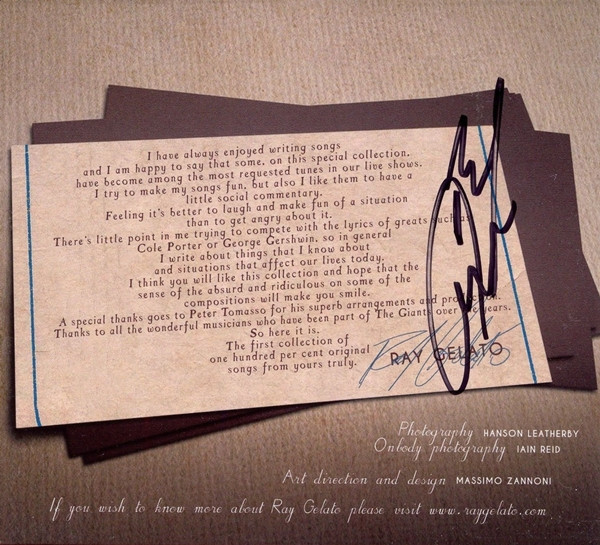 I have always enjoyed writing songs
and I am happy to say that some, on this special collection,
have become among the most requested tunes in our live shows.
I try to make my songs fun, but also I like them to have a
little social commentary.
Feeling it's better to laugh and make fun of a situation
than to get angry about it.
There's little point in me trying to compete with the lyrics of greats such as
Cole Porter or George Gershwin, so in general
I write about things that I know about
and situations that affect our lives today.
I think you will like this collection and hope that the
sense of the absurd and ridiculous on some of the
compositions will make you smile.
A special thanks goes to Peter Tomasso for his superb arrangements and production.
Thanks to all the wonderful musicians who have been part of The Giants over the years.
So here it is.
The first collection of
one hundred per cent original
songs from yours truly.
RAY GELATO
Photography HANSON LEATHERBY
Onbody photography IAIN REID
Art direction and design MASSIMO ZANNONI
If you wish to know more about Ray Gelato please visit www.raygelato.com